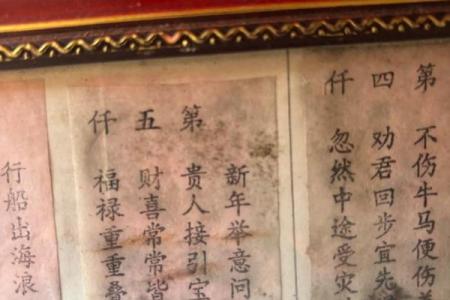 第四仟
不伤牛马便伤
劝君回步宜先
忽然中途受灾
第五仟
新年举意问
贵人接引宝
财喜常常皆
福禄重重叠
行船出海浪